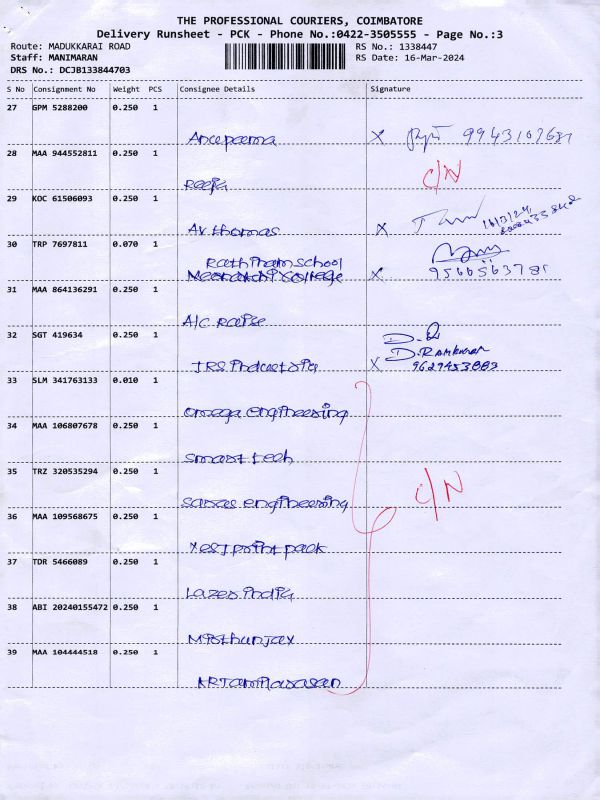 THE PROFESSIONAL COURIERS, COIMBATORE
Delivery Runsheet - PCK - Phone No.:0422-3505555 - Page No.:3
Route: MADUKKARAI ROAD RS No.: 1338447
Staff: MANIMARAN RS Date: 16-Mar-2024
DRS No.: DCJB133844703
S No Consignment No Weight PCS Consignee Details Signature
27 GPM 5288200 0.250 1
Anupama X 9943107681
28 MAA 944552811 0.250 1 C/N
Reeja
29 KOC 61506093 0.250 1
AV thomas X 16/3/24
30 TRP 7697811 0.070 1 Rathinam school
X 9566563781
31 MAA 864136291 0.250 1
A/C raise
32 SGT 419634 0.250 1 D. RAMKUMAR
JRS X 9629453883
33 SLM 341763133 0.010 1
omega engineering
34 MAA 106807678 0.250 1
smart tech
35 TRZ 320535294 0.250 1 C/N
saras engineering
36 MAA 109568675 0.250 1
point pack
37 TDR 5466089 0.250 1
Lazer india
38 ABI 20240155472 0.250 1
39 MAA 104444518 0.250 1